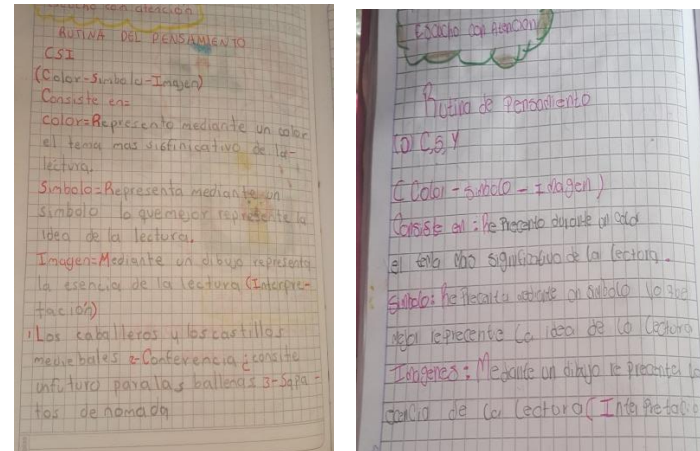 Escucho con atención
RUTINA DEL PENSAMIENTO
CSI
(Color-Simbolo-Imagen)
Consiste en=
color=Represento mediante un color
el tema mas sigtinicativo de la-
lectura.
Simbolo=Represento mediante un
simbolo lo que mejor represente la
idea de la lectura.
Imagen=Mediante un dibujo represento
la esencia de la lectura (Interpre-
tación)
1 Los caballeros y los castillos
mediebales 2-Conferencia ¿consite
unfuturo paralas ballenas 3-Sapa-
tos de nomada
Escucho con Atencion
Rutina de Pensamiento
C,S,Y
(Color-simbolo-Imagen)
Consiste en: Represento durante un color
el tema significativo de la lectora.
simbolo: un simbolo lo que
mejor reprecente la idea de lo lectora
Imagenes: Mediante un dibujo reprecento lo
de la lectora (Interpretacio